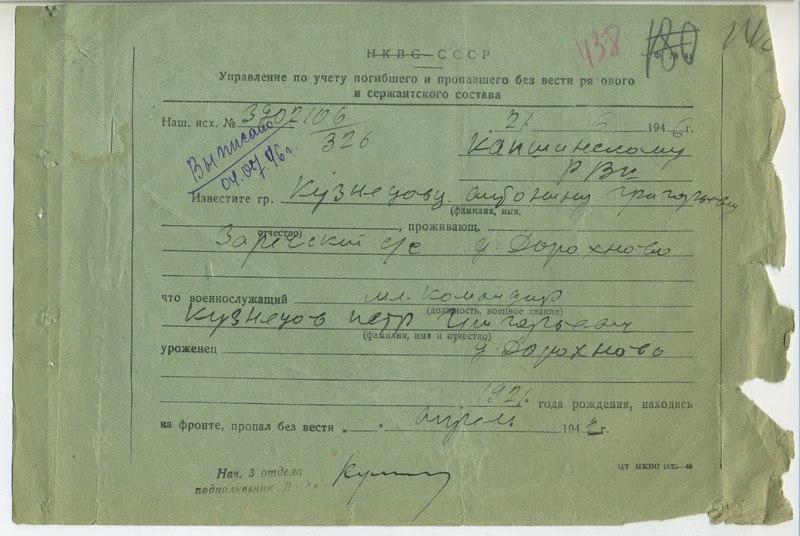 438 180
НКВС СССР
Управление по учету погибшего и пропавшего без вести рядового
и сержантского состава
Наш. исх. № 3202106 21 6 1946 г.
326 Капшинскому
РВК
Выписано
04.07.46 г.
Известите гр. Кузнецову Антонину Григорьевну
(фамилия, имя,
отчество) , проживающ.
Заречский с/с д. Дорохново
что военнослужащий мл. командир
(должность, военное звание)
Кузнецов Петр Григорьевич
(фамилия, имя и отчество)
уроженец д. Дорохново
1921. года рождения, находясь
на фронте, пропал без вести „ . апрель 1942 г.
Нач. 3 отдела
подполковник